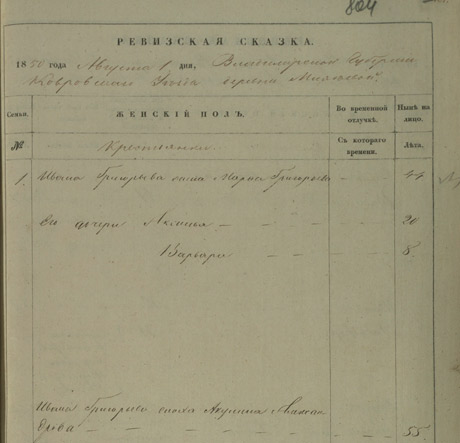 804
РЕВИЗСКАЯ СКАЗКА.
1850 года Августа 1 дня, Владимирской Губернии
Ковровскаго Уезда деревни
ЖЕНСКІЙ ПОЛЪ.
Во временной отлучкѣ.
Нынѣ на лицо.
Семьи.
№
Крестьянки
Съ котораго времени.
Лѣта.
1. Ивана Григорьева жена Марья Григорьева — 44
Ея дочери Акулина — — — — 20
Варвара — — — 8
Ивана Григорьева сноха Акулина
— — — — — 55